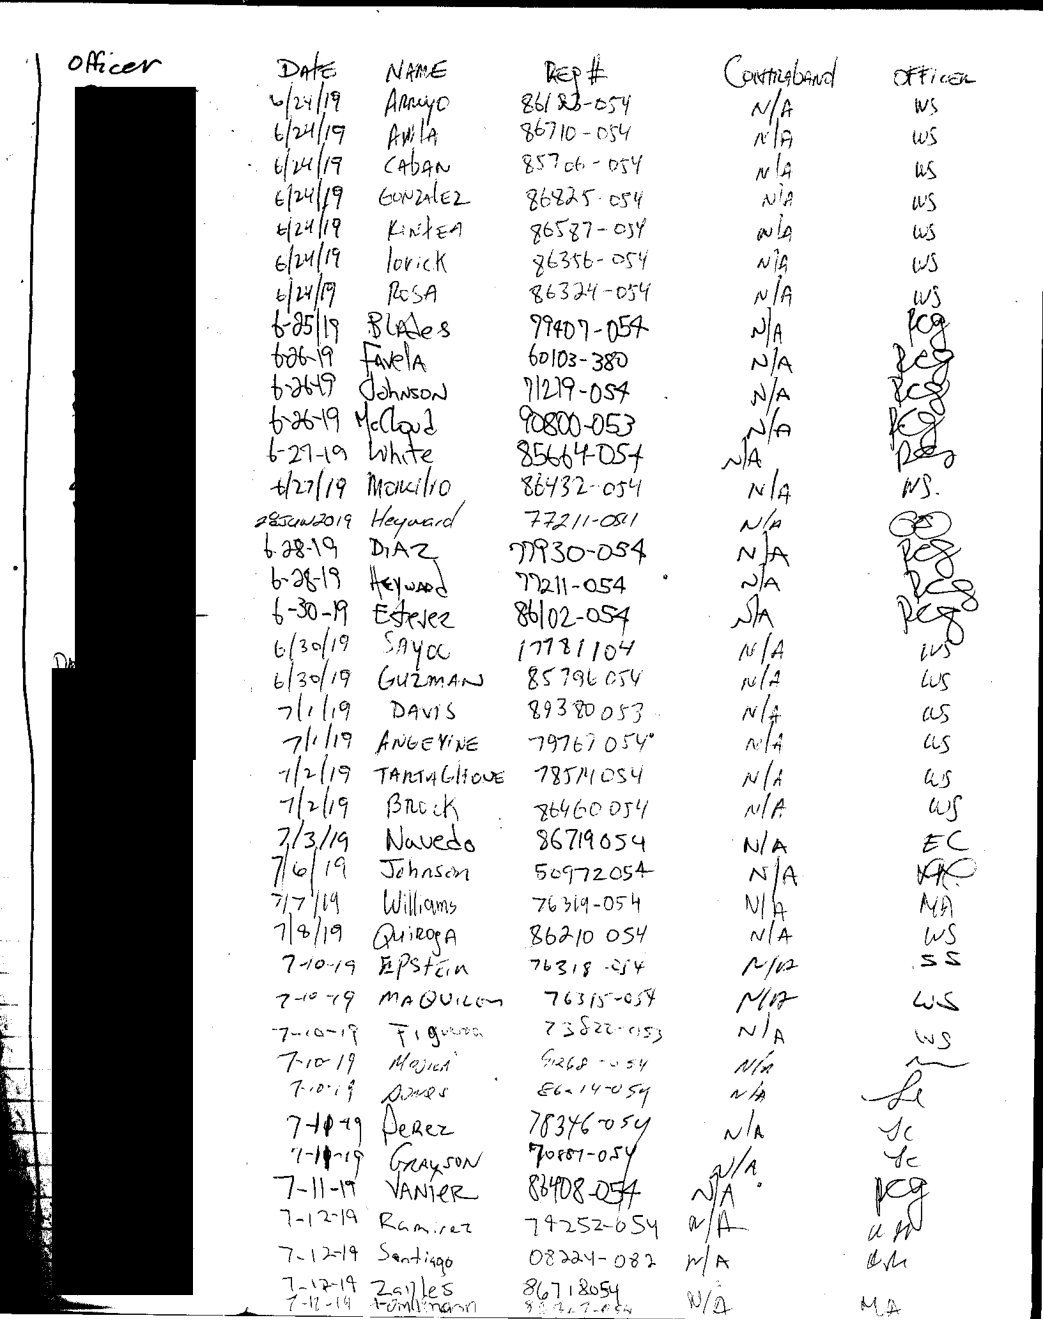 Officer DATE NAME REG # CONTRABAND OFFICER
6/24/19 Arroyo 86183-054 N/A WS
6/24/19 AVILA 86710-054 N/A WS
6/24/19 CABAN 85706-054 N/A WS
6/24/19 GONZALEZ 86825-054 N/A WS
6/24/19 KINTEA 86587-054 N/A WS
6/24/19 lorick 86356-054 N/A WS
6/24/19 ROSA 86324-054 N/A WS
6-25/19 BLADES 79407-054 N/A RCG
6-26-19 FAVELA 60103-380 N/A RCG
6-26-19 Johnson 71219-054 N/A RCG
6-26-19 McCloud 90800-053 N/A RCG
6-27-19 White 85664-054 N/A RCG
6/27/19 86432-054 N/A WS.
28JUN2019 Heyward 77211-054 N/A
6-28-19 DIAZ 77930-054 N/A RCG
6-28-19 HEYWARD 77211-054 N/A RCG
6-30-19 Estevez 86102-054 N/A RCG
6/30/19 SAYOC 17781104 N/A WS
6/30/19 GUZMAN 85796054 N/A WS
7/1/19 DAVIS 89380053 N/A WS
7/1/19 ANGEVINE 79767054 N/A WS
7/2/19 TARTAGLIONE 78514054 N/A WS
7/2/19 BROCK 86460054 N/A WS
7/3/19 Navedo 86719054 N/A EC
7/6/19 Johnson 50972054 N/A
7/7/19 Williams 76319-054 N/A MA
7/8/19 QUIROGA 86210 054 N/A WS
7-10-19 EPStein 76318-054 N/A SS
7-10-19 76315-054 N/A WS
7-10-19 Figueroa 73822-053 N/A WS
7-10-19 N/A
7-10-19 N/A
7-10-19 Perez 78346-054 N/A
7-10-19 GRAYSON N/A
7-11-19 VANIER 86408-054 N/A RCG
7-12-19 Ramirez 79252-054 N/A
7-12-19 Santiago 08224-082 N/A
7-12-19 86718054
7-12-19 N/A MA